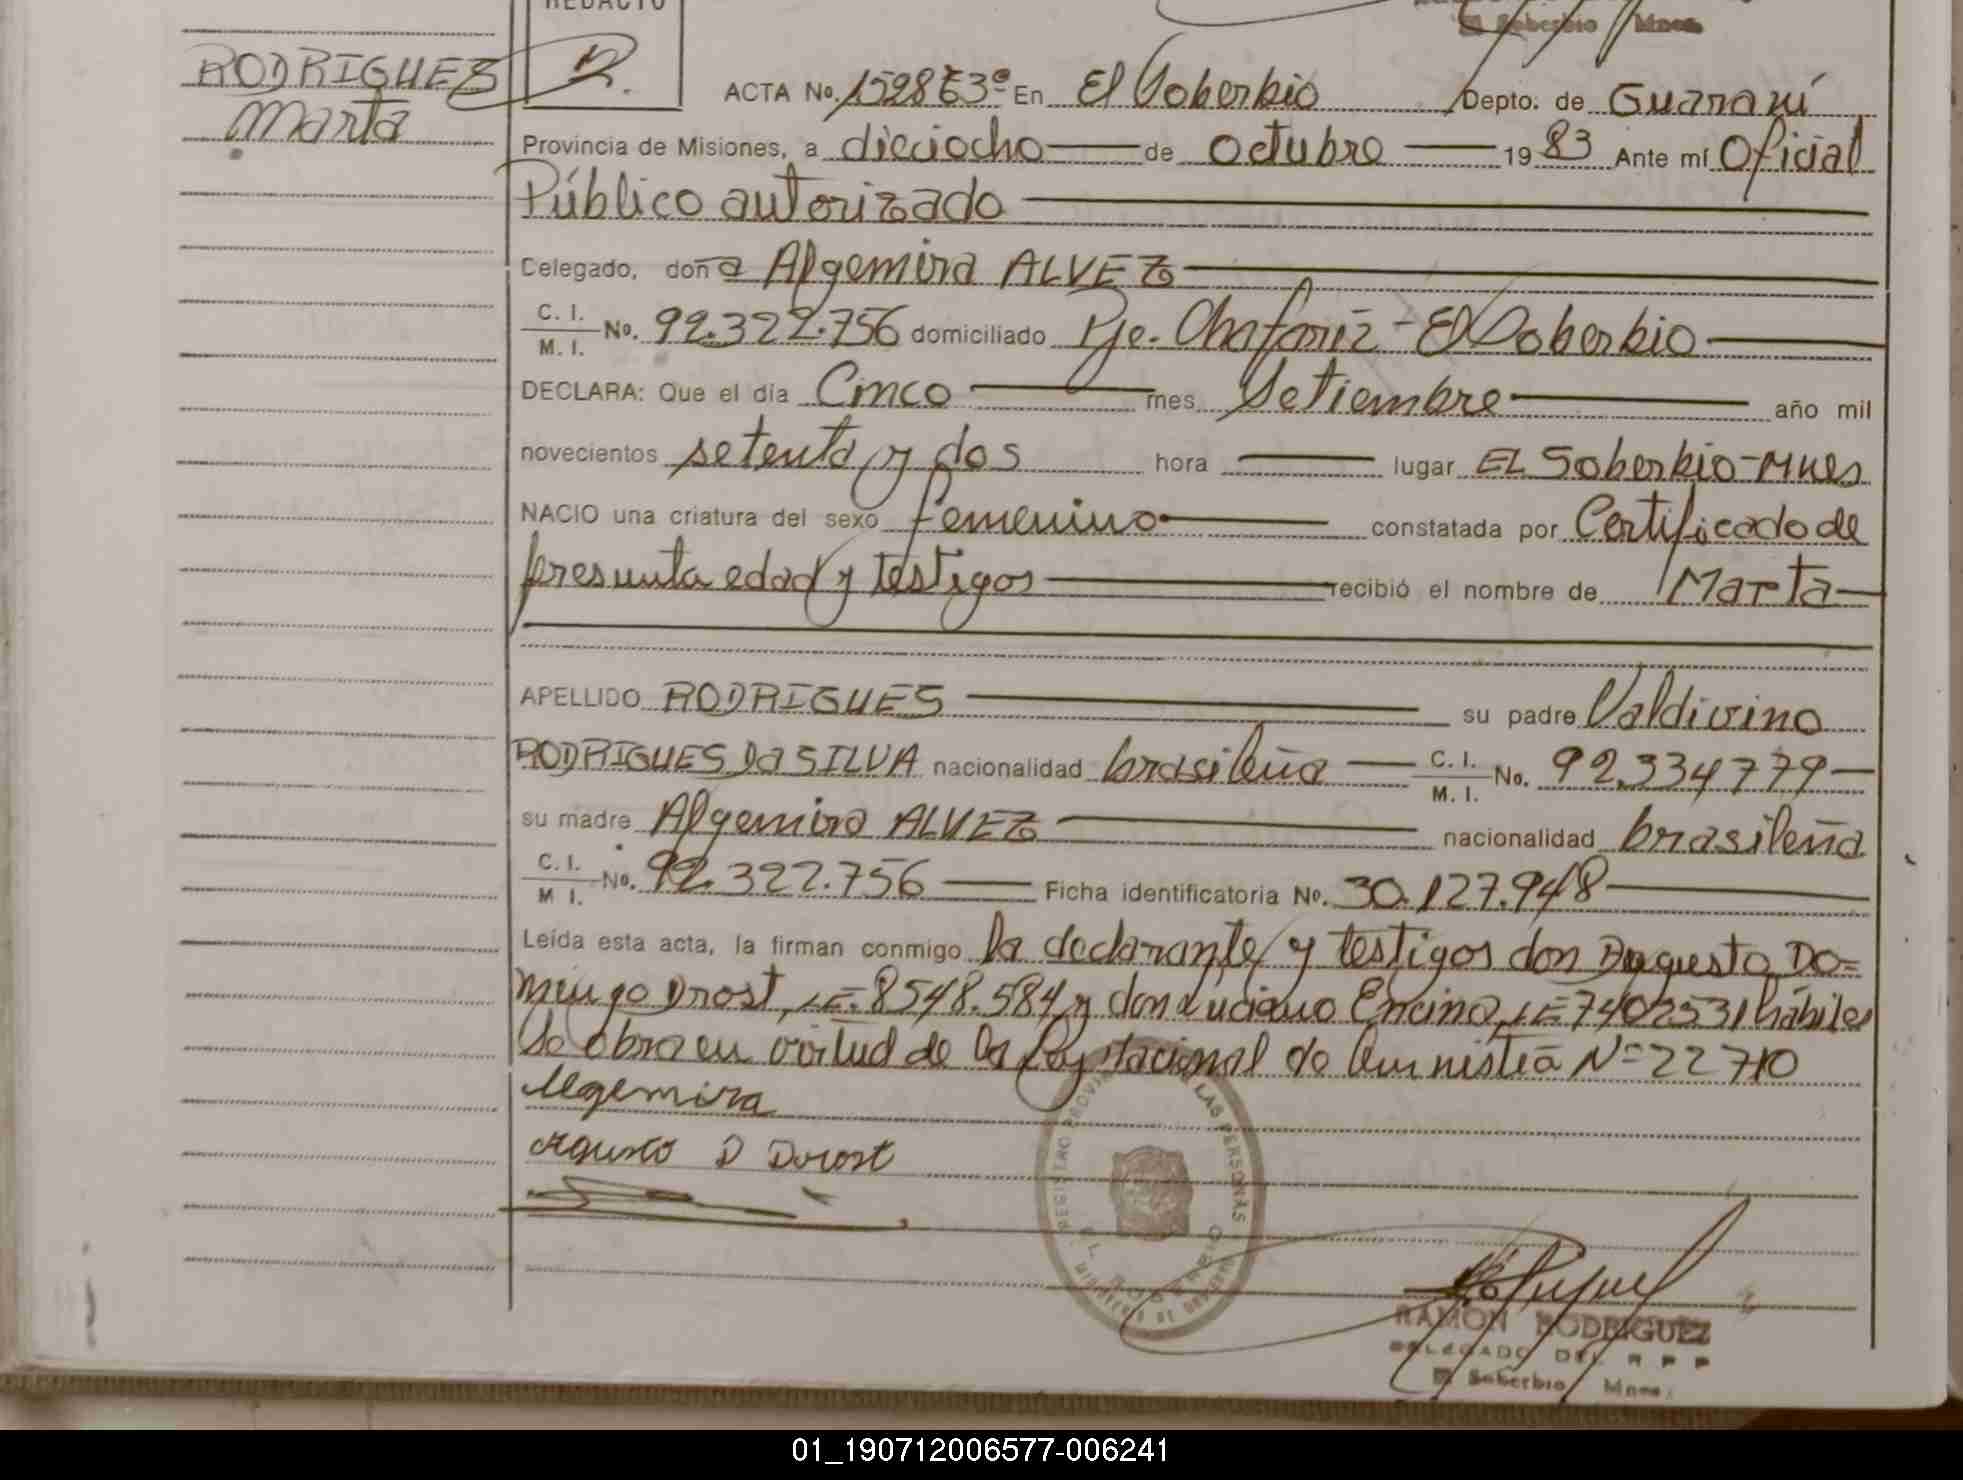 REDACTO
Soberbio Mnes.
RODRIGUES
Marta
ACTA No. 1528 E3º En El Soberbio Depto. de Guaraní
Provincia de Misiones, a dieciocho de Octubre 1983 Ante mí Oficial
Público autorizado
Celegado, doña Algemira ALVEZ
C. I. M. I. No. 92.322.756 domiciliado Pje. Chafariz - El Soberbio
DECLARA: Que el día Cinco mes Setiembre año mil
novecientos setenta y dos hora lugar EL Soberbio-Mnes
NACIO una criatura del sexo femenino constatada por Certificado de
presunta edad y testigos recibió el nombre de Marta
APELLIDO RODRIGUES su padre Valdivino
RODRIGUES Da SILVA nacionalidad brasileña C. I. M. I. No. 92.334779
su madre Algemira ALVEZ nacionalidad brasileña
C. I. M I. No. 92.322.756 Ficha identificatoria No. 30.127.948
Leída esta acta, la firman conmigo la declarante y testigos don Augusto Do=
mingo Drost, LE. 8548.584 y don Luciano Encina, LE 7402531 hábiles
Se obra en virtud de la Ley Nacional de Amnistia Nº 22710
Algemira
Agusto D Drost
REGISTRO PROVINCIAL DE LAS PERSONAS
EL SOBERBIO
RAMON RODRIGUEZ
DELEGADO DEL R P P
El Soberbio Mnes.
01_190712006577-006241